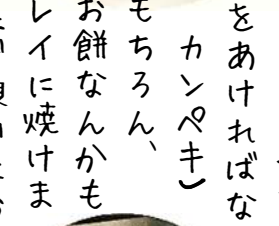 をあければな
カンペキ)
もちろん、
お餅なんかも
レイに焼けま